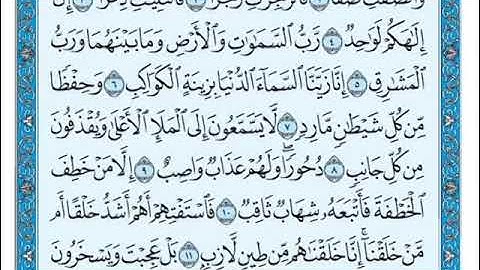 وَٱلصَّٰٓفَّٰتِ صَفًّا ١ فَٱلزَّٰجِرَٰتِ زَجْرًا ٢ فَٱلتَّٰلِيَٰتِ ذِكْرًا ٣ إِنَّ
إِلَٰهَكُمْ لَوَٰحِدٌ ٤ رَّبُّ ٱلسَّمَٰوَٰتِ وَٱلْأَرْضِ وَمَا بَيْنَهُمَا وَرَبُّ
ٱلْمَشَٰرِقِ ٥ إِنَّا زَيَّنَّا ٱلسَّمَآءَ ٱلدُّنْيَا بِزِينَةٍ ٱلْكَوَاكِبِ ٦ وَحِفْظًا
مِّن كُلِّ شَيْطَٰنٍ مَّارِدٍ ٧ لَّا يَسَّمَّعُونَ إِلَى ٱلْمَلَإِ ٱلْأَعْلَىٰ وَيُقْذَفُونَ
مِن كُلِّ جَانِبٍ ٨ دُحُورًا ۖ وَلَهُمْ عَذَابٌ وَاصِبٌ ٩ إِلَّا مَنْ خَطِفَ
ٱلْخَطْفَةَ فَأَتْبَعَهُۥ شِهَابٌ ثَاقِبٌ ١٠ فَٱسْتَفْتِهِمْ أَهُمْ أَشَدُّ خَلْقًا أَم
مَّنْ خَلَقْنَآ ۚ إِنَّا خَلَقْنَٰهُم مِّن طِينٍ لَّازِبٍۭ ١١ بَلْ عَجِبْتَ وَيَسْخَرُونَ